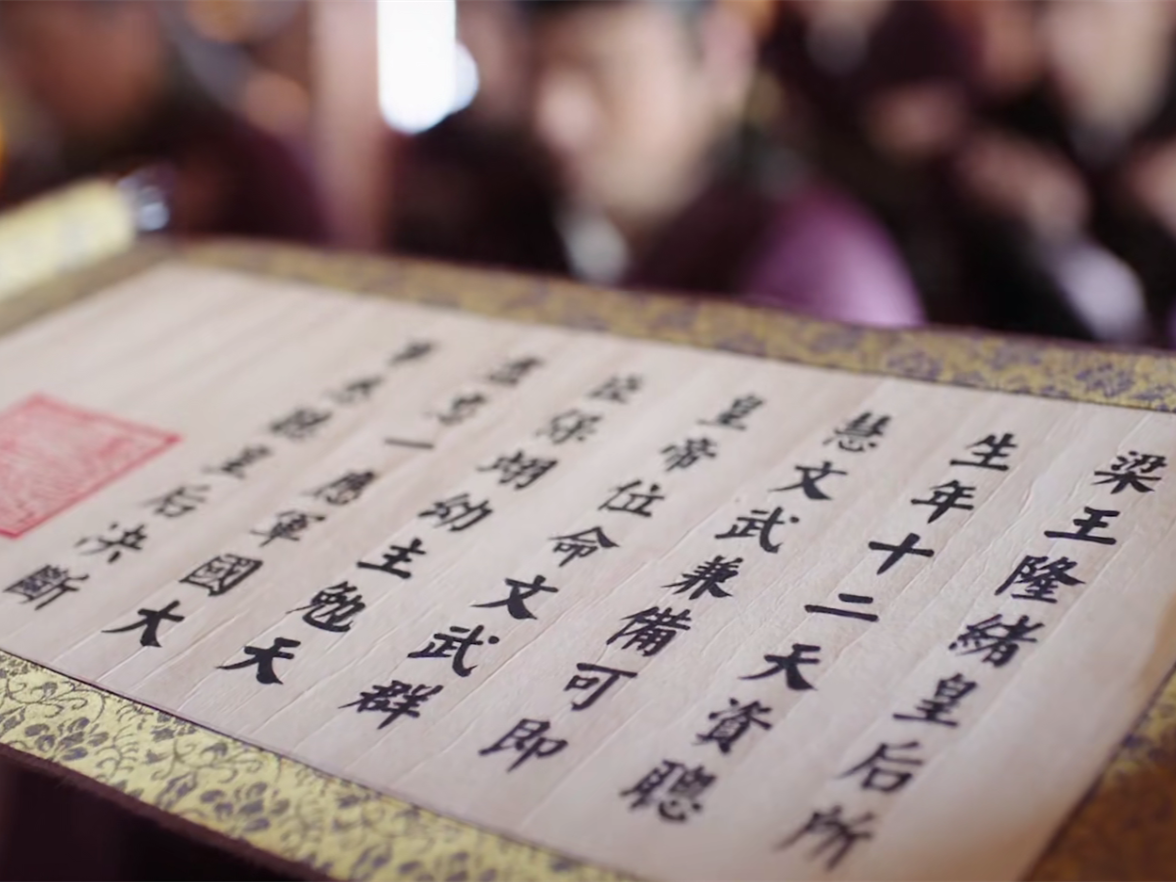 梁王隆緒皇后所
生年十二天資聰
慧文武兼備可即
皇帝位命文武群
臣保翊幼主勉天
一應軍國大
事聽皇后決斷